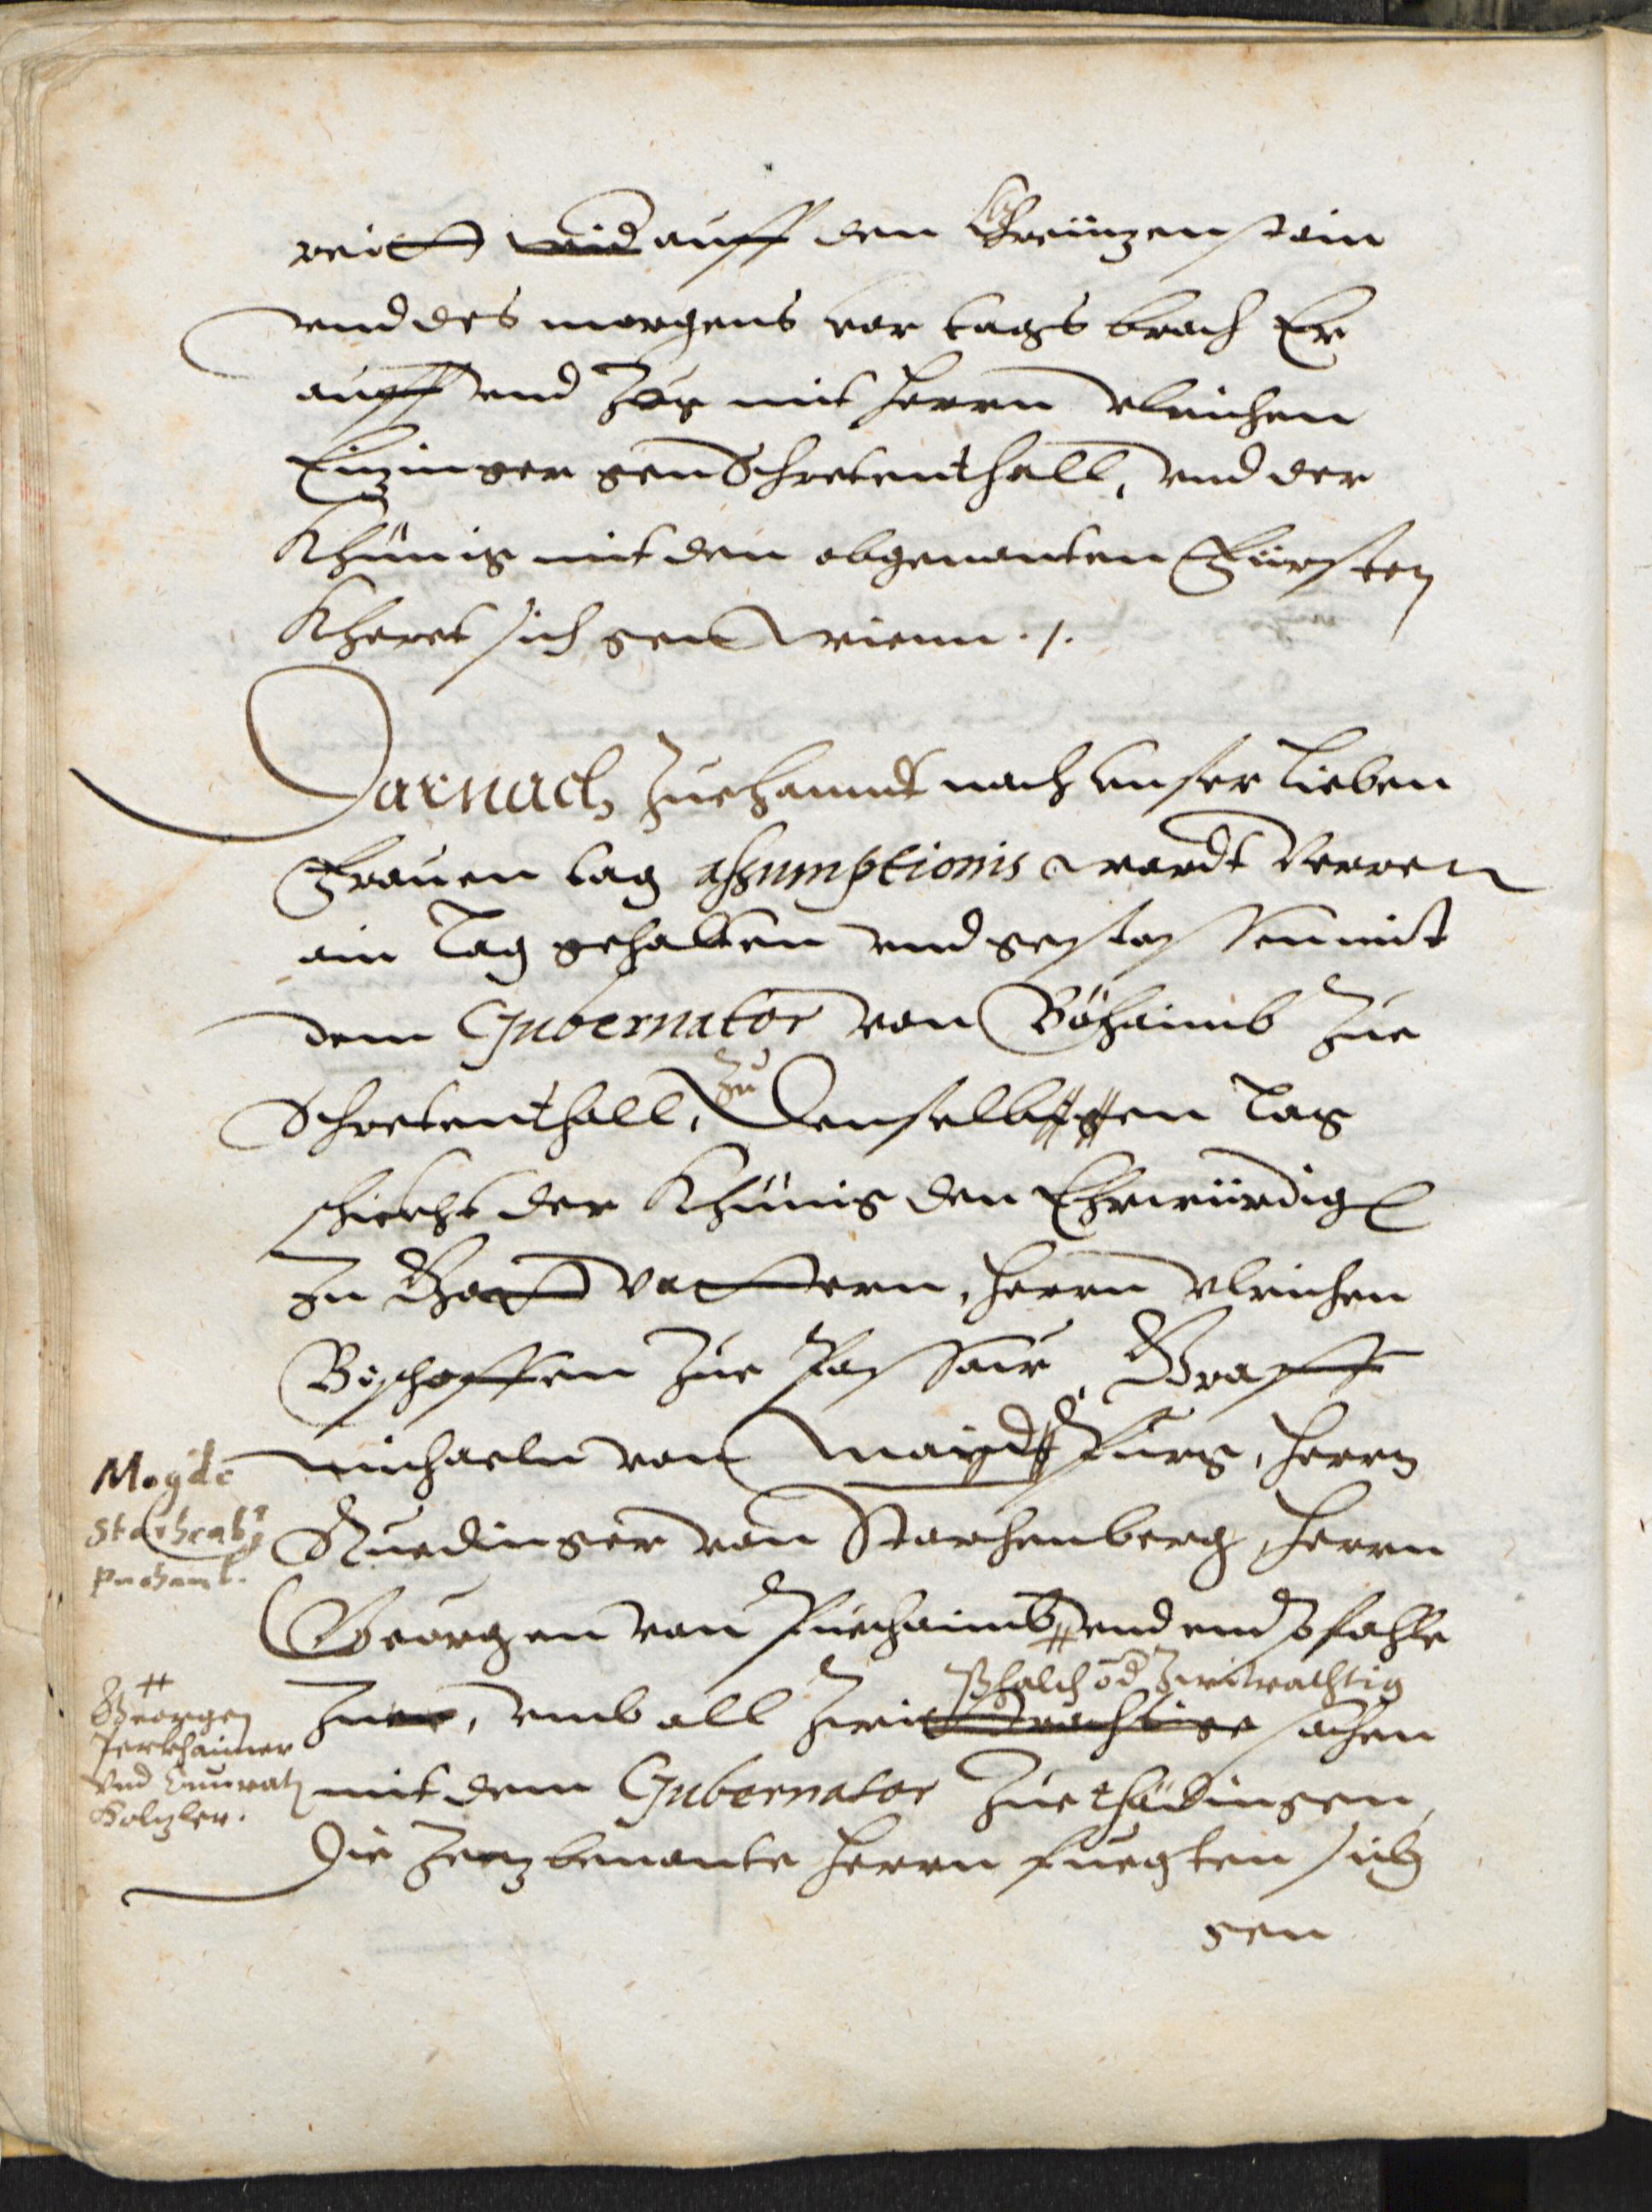 reitt wid auff den Greiizenstain
vnd des morgens vor tags brach Er
auff vnd Zog mit Herrn Vlrichen
Einzinger gen Schretenthall, vnd der
Khünig mit den obgenanten Fürsten
Kheret sich gen Wienn ./.
Darnach Zuehanndt nach Vnser Lieben
Frauen tag assumptionis wardt Verren
ain Tag gehalten vnd gestossen mit
dem Gubernator von Böhaimb Zue
Schretenthall, Zu Denselbigen Tag
schickht der Khünig den Ehrwürdigen
In Gott Vattern, Herrn Vlrichen
Bischoffen Zue Passaw, Graff
Michaeln von Maydburg, Herrn
Ruedinger von Starhenberg, Herrn
Georgen von Puechaimb vnd empfahl
Zwey, vmb all Zwitrachtige sachen
mit dem Gubernator Zue thädingen,
Die Jezbenante Herrn fuegten sich
gen
Magde
Starhenb:
Puchamb.
Georgen
Perkhaimer
Vnd Connrath
Holzler.